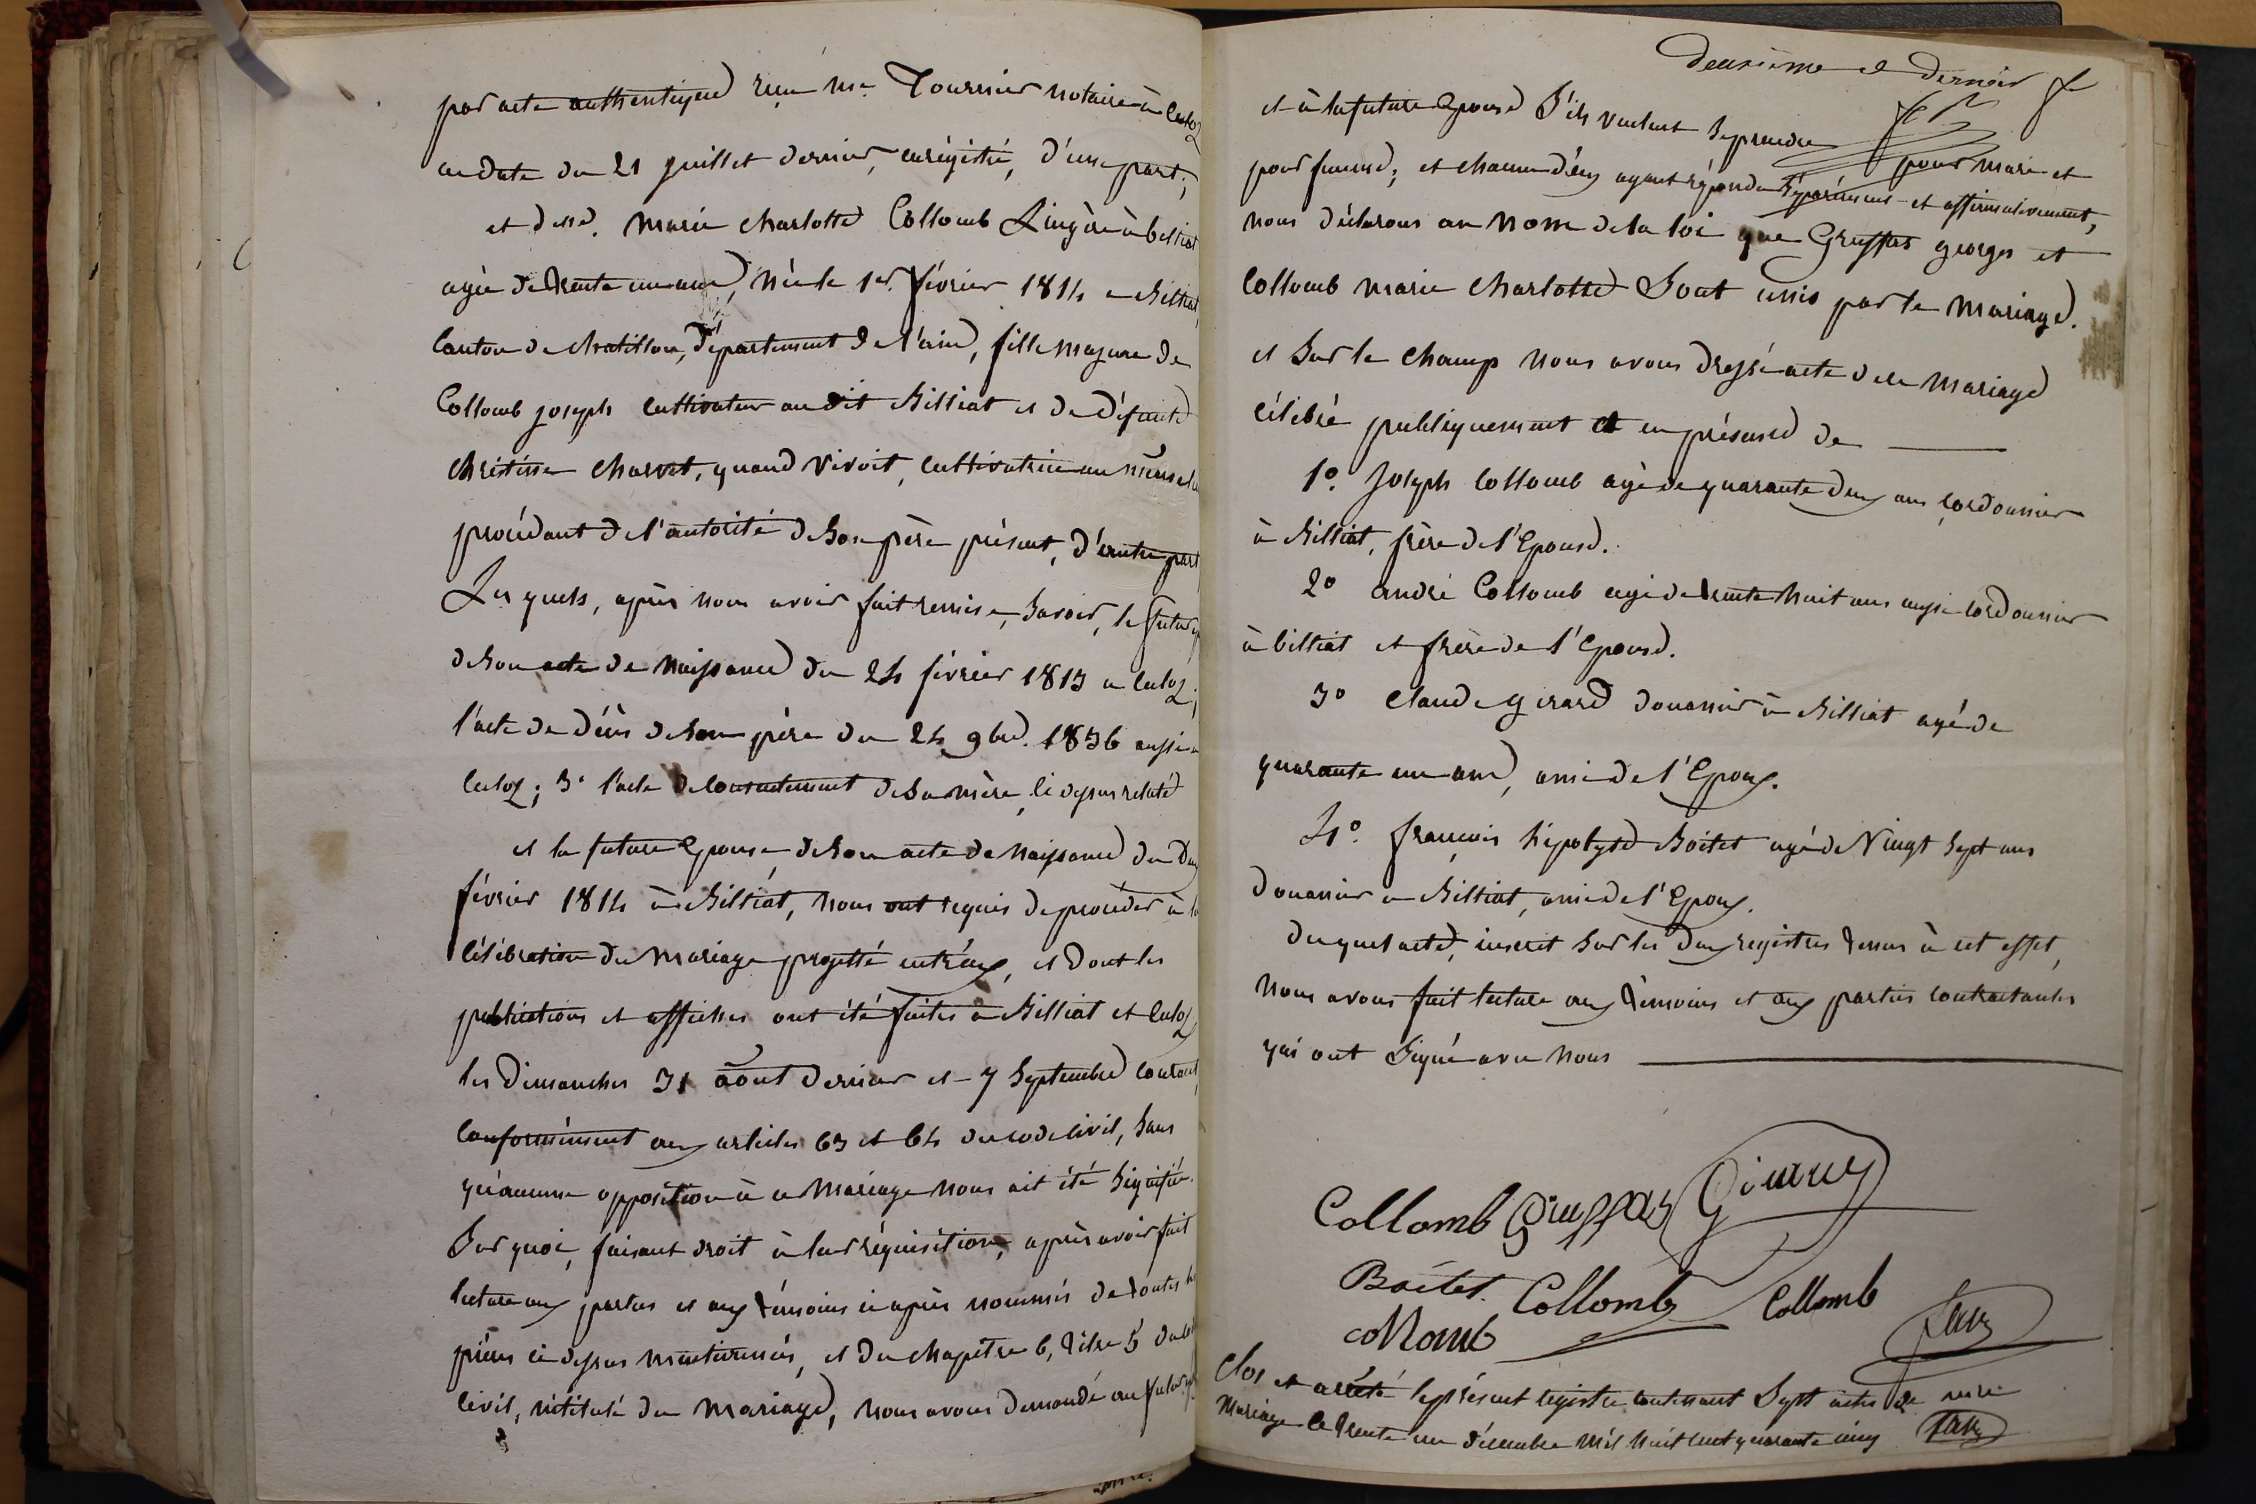 par acte authentique reçu me. Tournier notaire à Culoz
en date du 21 juillet dernier, enrégistré, d'une part;
et delle. Marie Charlotte Collomb Lingère à billiat
agée de trente un ans, née le 1er. février 1814 à Billiat,
canton de chatillon, département de l'ain, fille majeure de
Collomb joseph cultivateur au dit Billiat et de défunte
christine Charvet, quand vivoit, cultivatrice au même lieu
procédant de l'autorité de son père présent, d'autre part
Lesquels, après nous avoir fait remise, Savoir, le futur
de son acte de naissance du 24 février 1813 à culoz;
l'acte de décès de son père du 24 9bre. 1836 aussi à
culoz; 3° l'acte de consentement de sa mère, ci dessus relaté
et la future Epouse de son acte de naissance du deux
février 1814 à Billiat, nous ont requis de procéder à la
célébration du mariage projetté entr'eux, et dont les
publications et affiches ont été faites à Billiat et Culoz
les dimanches 31 aôut dernier et 7 Septembre courant
conformément aux articles 63 et 64 du code civil, Sans
qu'aucune opposition à ce Mariage nous ait été Signifiée.
Sur quoi, faisant droit à leur réquisition, après avoir fait
lecture aux parties et aux témoins ci après nommés de toutes les
pièces ci dessus mentionnées, et du chapitre 6, titre 5 du code
civil, intitulé du Mariage, nous avons demandé au futur
deuxième et dernier f
et à la future Epouse S'ils veulent Se prendre pour mari et
pour femme; et chacun d'eux ayant répondu Séparément et affirmativement,
nous déclarons au nom de la loi que Gruffas georges et
Collomb marie Charlotte Sont unis par le mariage.
et Sur le champ nous avons dressé acte de ce Mariage
célébré publiquement et en présence de
1°. Joseph Collomb agé de quarante deux ans cordonnier
à Billiat, frère de l'Epouse.
2° andré Collomb agé de trente huit ans aussi cordonnier
à billiat et frère de l'Epouse.
3° Claude Girard douanier à Billiat agé de
quarante un ans, ami de l'Epoux.
4°. françois hipolyte Boitet agé de Vingt Sept ans
douanier à Billiat, ami de l'Epoux.
duquel acte, inscrit Sur les deux registres tenus à cet effet,
nous avons fait lecture aux témoins et aux parties contractantes
qui ont Signé avec nous
Collomb Gruffas
Boitet Collomb Collomb
collomb
Clos et arrêté le présent registre contenant Sept actes de
Mariage le trente un décembre mil huit cent quarante cinq